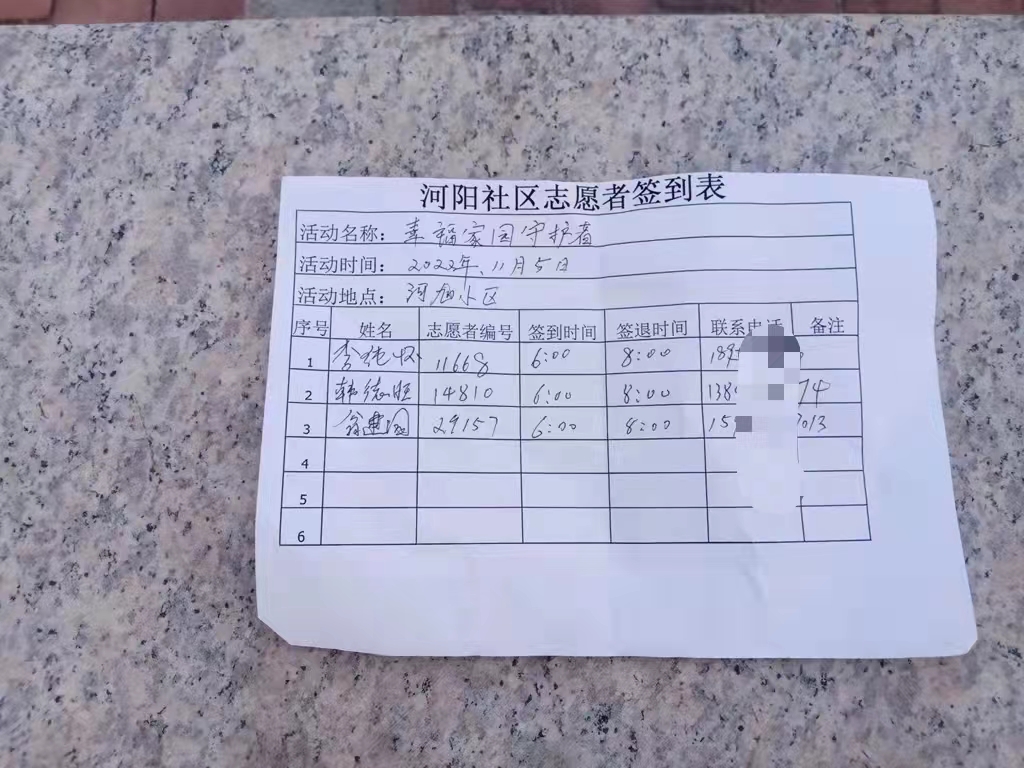 河阳社区志愿者签到表
活动名称：幸福家园守护者
活动时间：2022年、11月5日
活动地点：河旭小区
序号 姓名 志愿者编号 签到时间 签退时间 联系电话 备注
1 李 11668 6:00 8:00 189
2 韩德旺 14810 6:00 8:00 138 74
3 翁建国 29157 6:00 8:00 15 013
4
5
6